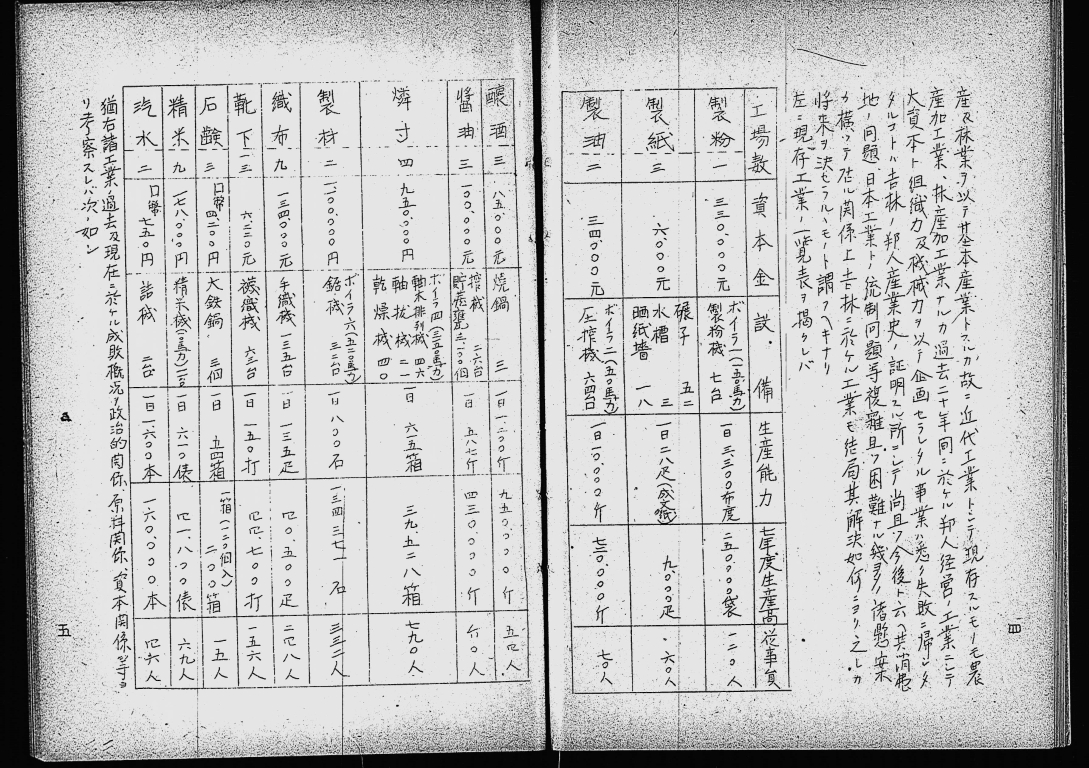 産及林業ヲ以テ其基本産業トスルカ故ニ近代工業トシテ現存スルモノモ農
産加工業、林産加工業ナルカ過去二十年間ニ於ケル邦人経営ノ工業ニシテ
大資本ト組織力及機械力ヲ以テ企画セラレタル事業ハ悉ク失敗ニ帰シタ
ルコトハ吉林ノ邦人産業史ノ証明スル所ニシテ尚且ツ今後ト云ヘ共消費
地ノ問題、日本工業トノ統制問題等複雑且ツ困難ナル幾多ノ諸懸案
カ横ハリテ在ル関係上吉林ニ於ケル工業モ結局其解決如何ニヨリ之レカ
将来ヲ決セラルヽモノト謂フヘキナリ
左ニ現存工業ノ一覧表ヲ掲クレバ
工場数 資本金 設備 生産能力 七年度生産高 従事員
製粉 一 三三〇、〇〇〇元 ボイラ一(一五〇馬力) 製粉機 七台 一日三、三〇〇布度 二五〇、〇〇〇袋 一二〇人
製紙 三 六、〇〇〇元 碾子 五二 水槽 三 晒紙墻 一八 一日二八疋 九、〇〇〇疋 六〇人
製油 三 三四、〇〇〇元 ボイラ二(五〇馬力) 圧搾機 六四台 一日一〇、〇〇〇斤 七三〇、〇〇〇斤 七〇人
四
醸酒 三 八五、〇〇〇元 焼鍋 三 一日一、二〇〇斤 九五〇、〇〇〇斤 五四人
醤油 三 一〇〇、〇〇〇元 搾機 二六台 一日 五八七斤 四三〇、〇〇〇斤 六〇人
燐寸 四 九五〇、〇〇〇円 ボイラ四(三五〇馬力) 軸木排列機 四六 軸抜機 二一 乾燥機 四〇 一日 六一五箱 三九、五二八箱 七九〇人
製材 二 二〇〇、〇〇〇円 ボイラ六(五二〇馬力) 鋸機 三二台 一日 八〇〇石 一三四、三七一石 三三二人
織布 九 一三四、〇〇〇元 手織機 一三五台 一日 一三五疋 四〇、五〇〇疋 二四八人
靴下 一三 六、二三〇元 襪織機 六三台 一日 一五〇打 四四、七〇〇打 一五六人
石鹸 三 口幣 四、二〇〇元 大鉄鍋 三個 一日 五四箱 一箱(一二〇個入) 二、〇〇〇箱 一五人
精米 九 一七八、〇〇〇円 精米機 一日 六一〇俵 四一、八〇〇俵 六九人
汽水 二 口幣 七五〇円 詰機 二台 一日 一、六〇〇本 一六〇、〇〇〇本 四六人
猶右諸工業ノ過去及現在ニ於ケル成敗概況ヲ政治的関係、原料関係、資本関係等ヨ
リ考察スレハ次ノ如シ
五